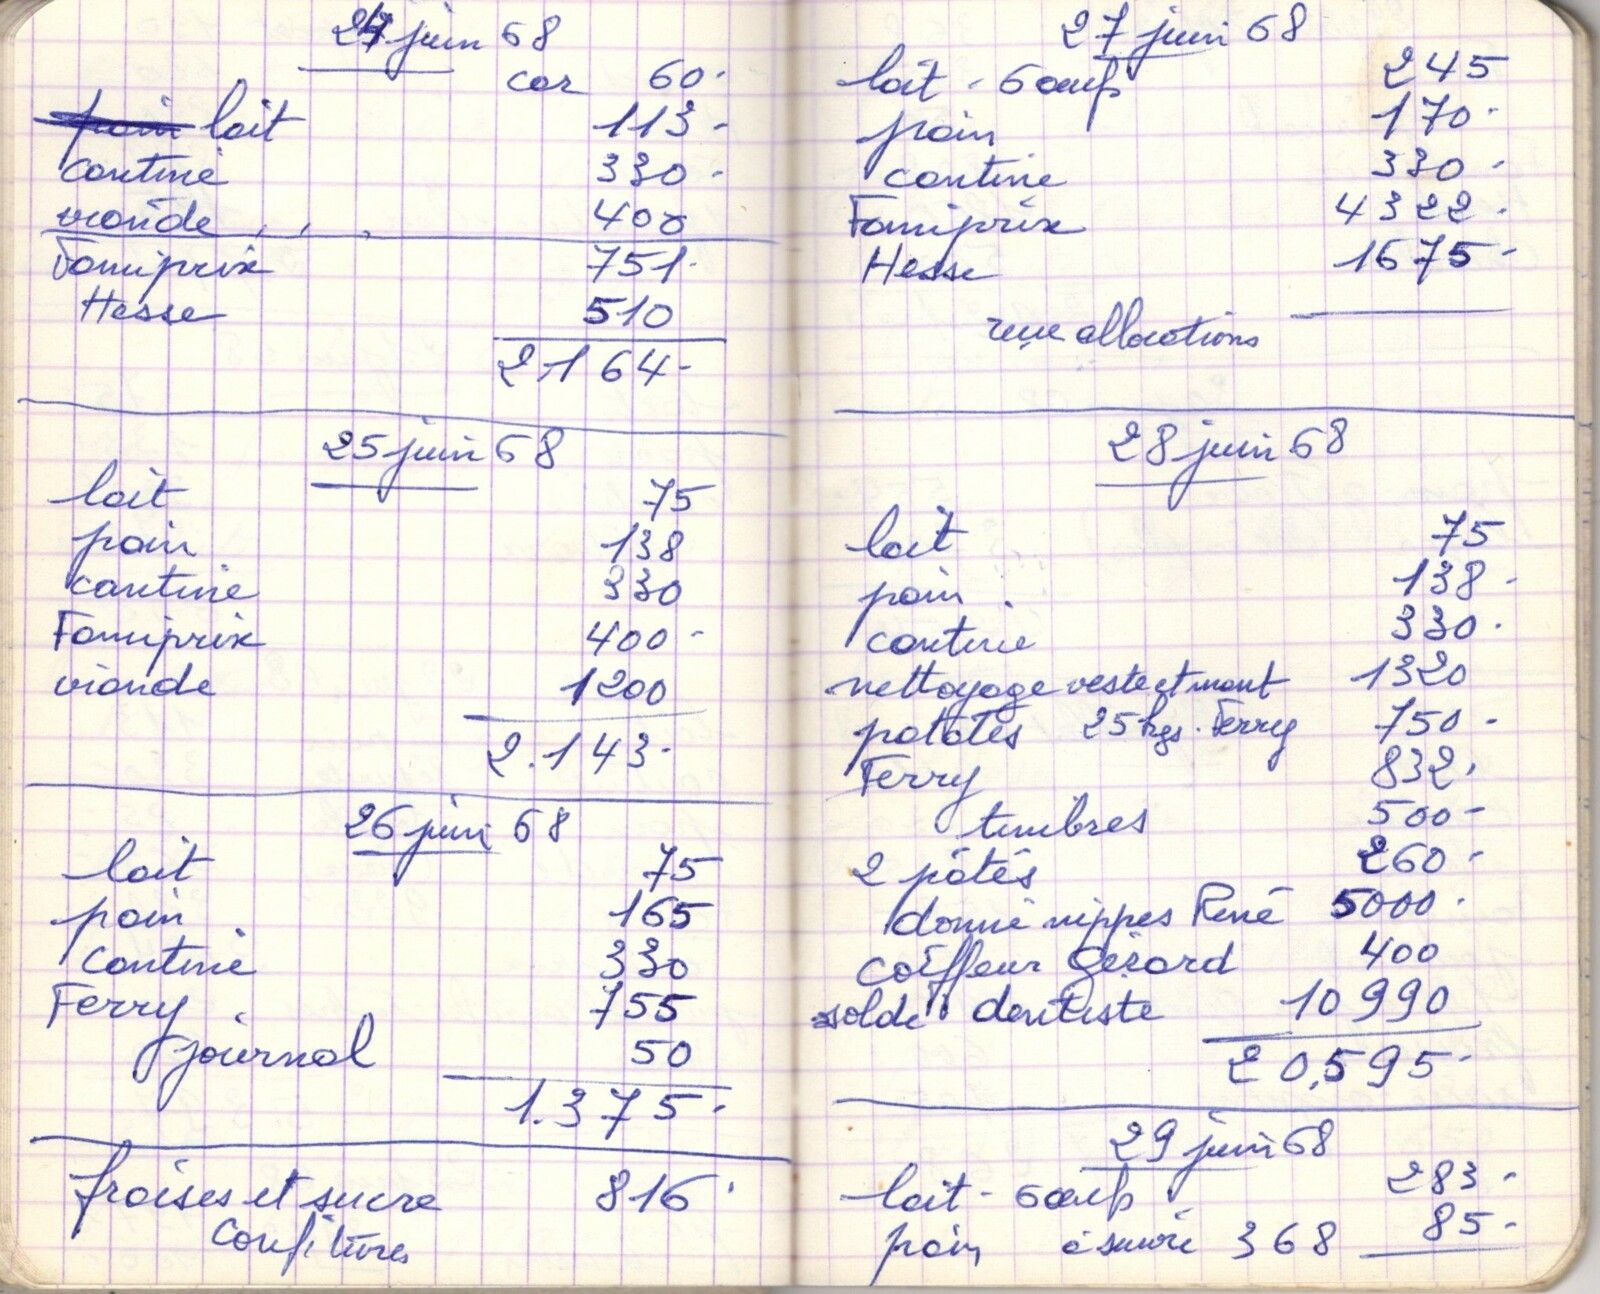 24 juin 68
car 60.
pain lait 113.
cantine 330.
viande 400
Famiprix 751.
Hesse 510
2.164.
25 juin 68
lait 75
pain 138
cantine 330
Famiprix 400.
viande 1200
2.143.
26 juin 68
lait 75
pain 165
cantine 330
Ferry 755
journal 50
1.375.
fraises et sucre 816.
confitures
27 juin 68
lait - 6 oeufs 245
pain 170.
cantine 330.
Famiprix 4322.
Hesse 1675.
reçu allocations
28 juin 68
lait 75
pain 138.
cantine 330.
nettoyage veste et mant 1320
patates 25 kgs. Ferry 750.
Ferry 832.
timbres 500-
2 pâtés 260.
donné nippes René 5000.
coiffeur Gérard 400
solde dentiste 10990
20,595.
29 juin 68
lait - 6 oeufs 283.
pain à suivre 368 85.